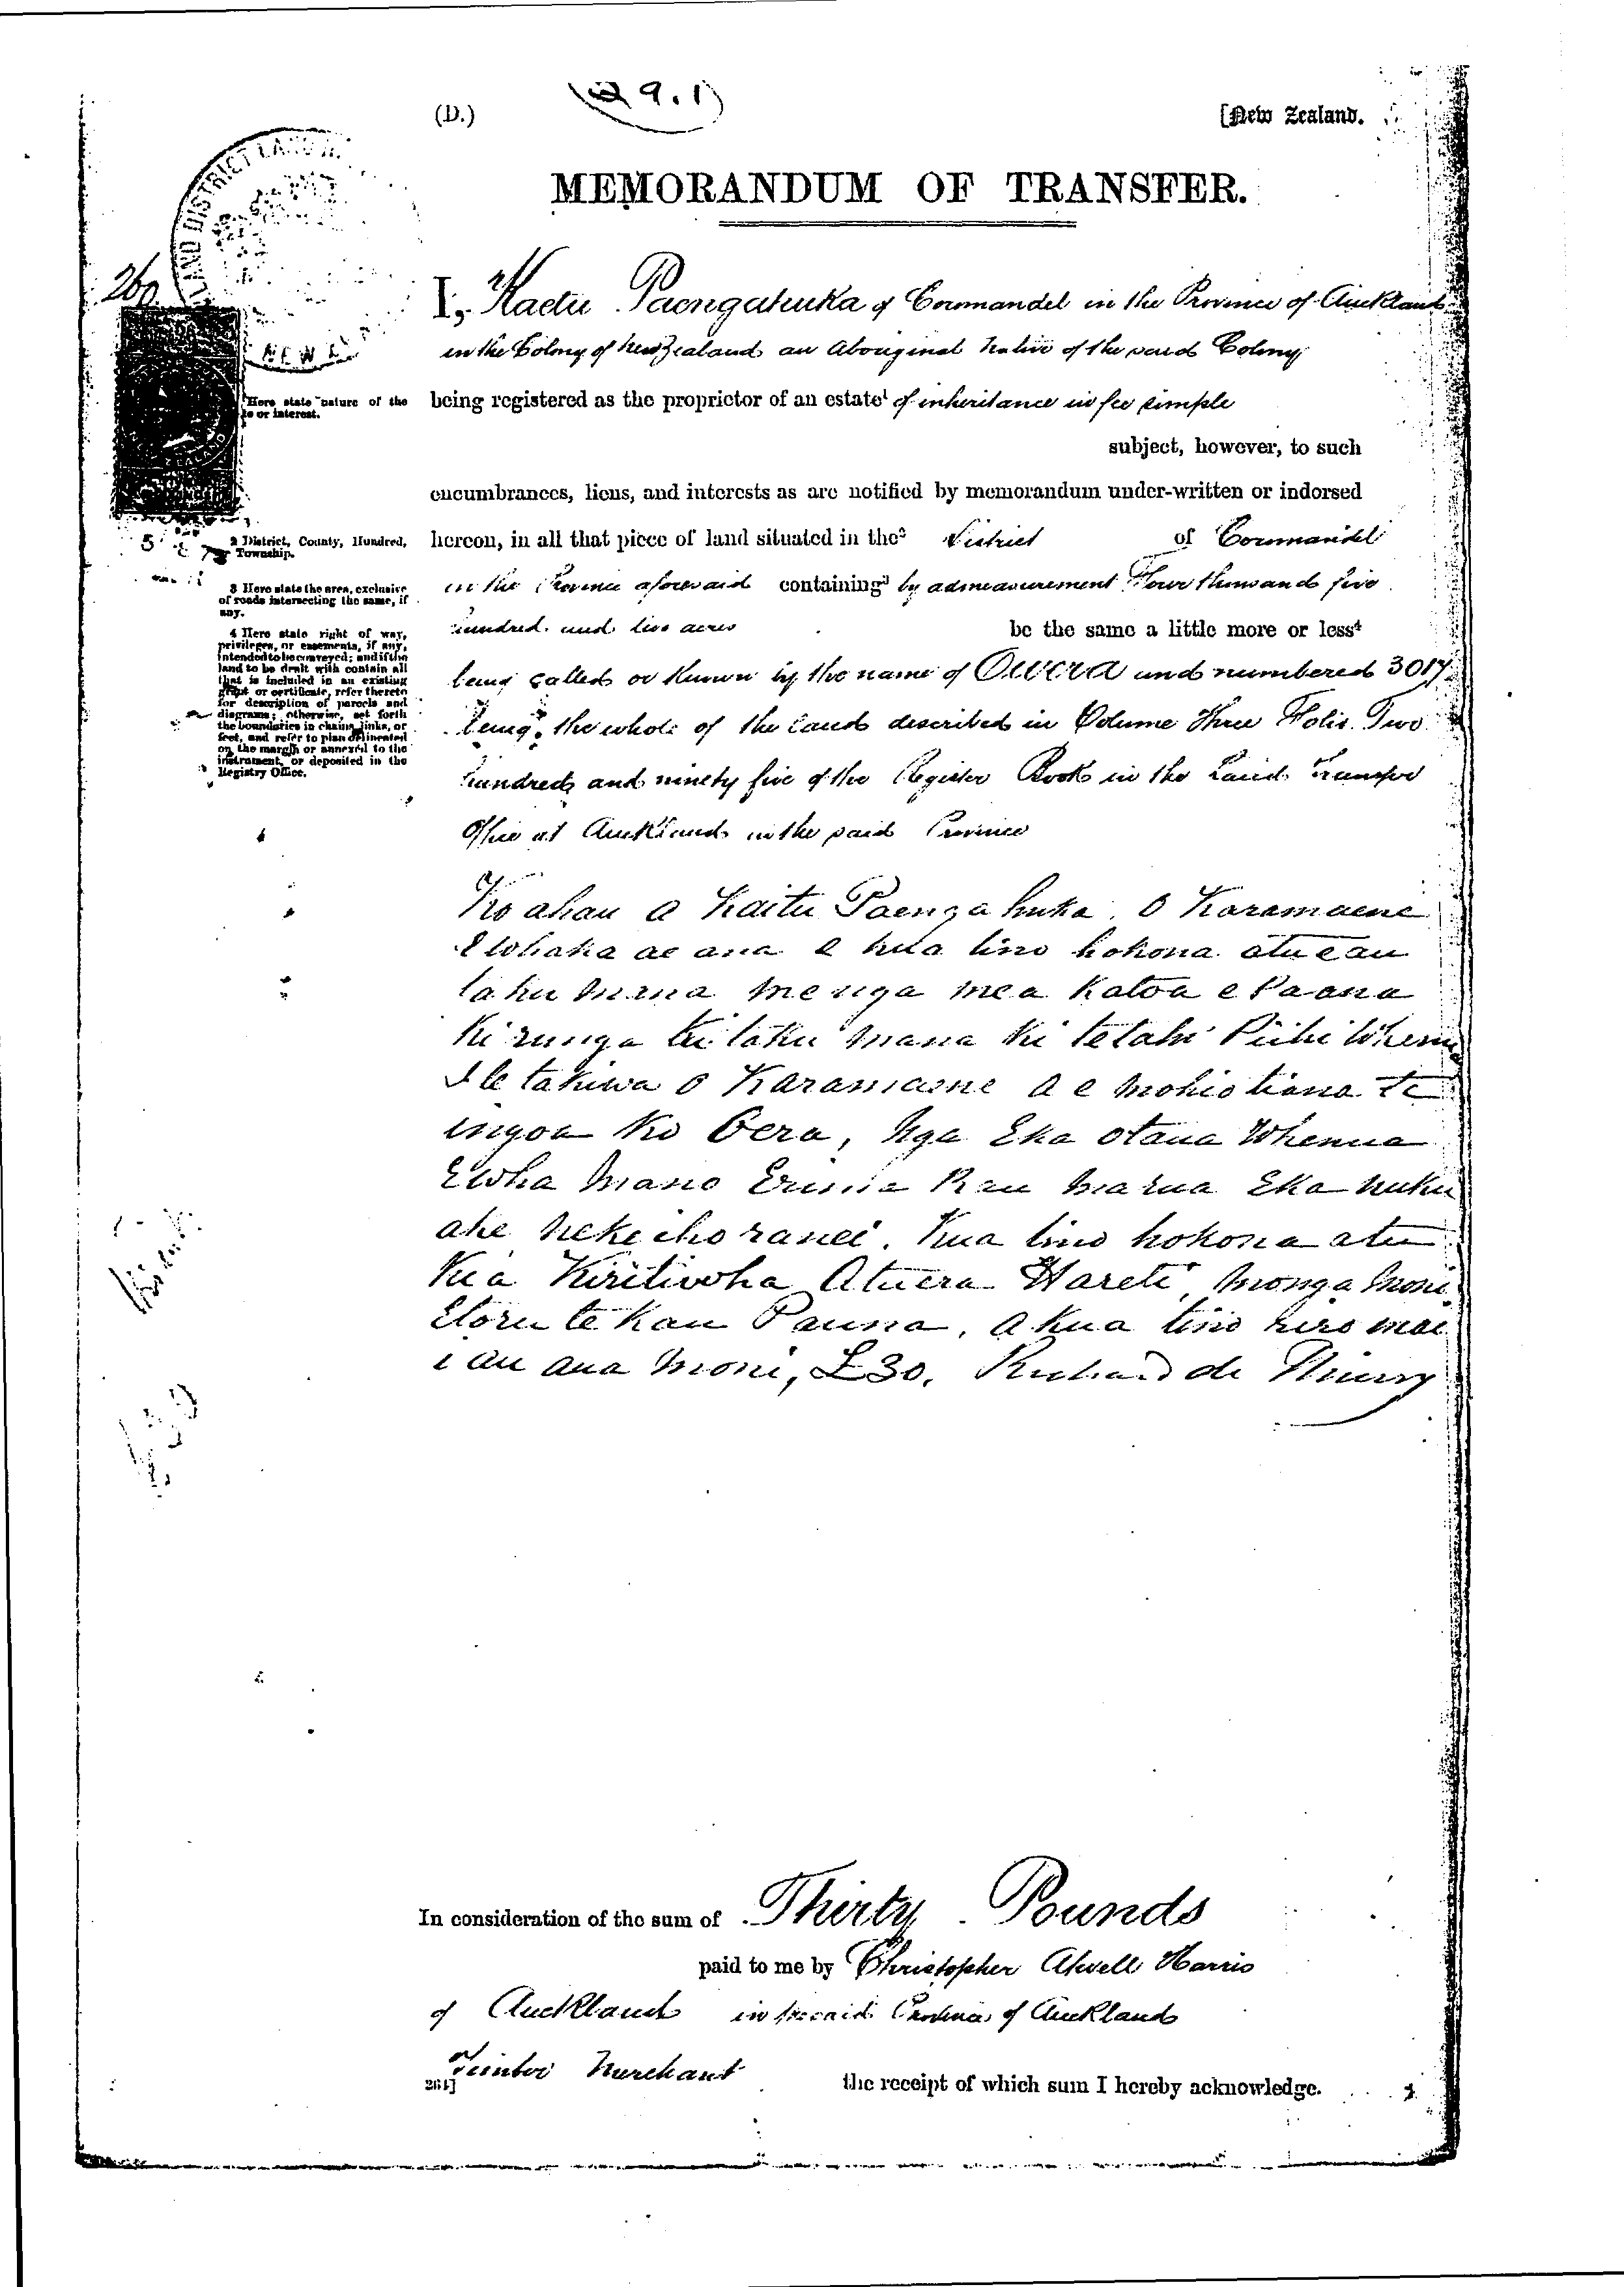 (D.)
[New Zealand.
MEMORANDUM OF TRANSFER.
260
I, Kaitu Paengahuka of Coromandel in the Province of Auckland
in the Colony of New Zealand an Aboriginal Native of the said Colony
1 Here state nature of the
being registered as the proprietor of an estate¹ of inheritance in fee simple
or interest.
subject, however, to such
encumbrances, liens, and interests as are notified by memorandum under-written or indorsed
2 District, County, Hundred,
Township.
hereon, in all that piece of land situated in the² District of Coromandel
3 Here state the area, exclusive
of roads intersecting the same, if
any.
in the Province aforesaid containing³ by admeasurement Four thousand five
hundred and two acres be the same a little more or less⁴
4 Here state right of way,
privileges, or easements, if any,
intended to be conveyed; and if the
land to be dealt with contain all
that is included in an existing
grant or certificate, refer thereto
for description of parcels and
diagrams; otherwise, set forth
the boundaries in chains, links, or
feet, and refer to plan delineated
on the margin or annexed to the
instrument, or deposited in the
Registry Office.
being called or known by the name of and numbered 3017
being the whole of the land described in Volume Three Folio Two
hundred and ninety five of the Register Book in the Land Transfer
Office at Auckland in the said Province
Ko ahau a Kaitu Paengahuka O Karamaene
E Whaka ae ana e kua tino hokona atu e au
taku mana me nga mea katoa e Pa ana
ki runga ki taku mana ki tetahi Piihi Whenua
I te takiwa o Karamaene a e mohiotiana te
ingoa ko Oera, Nga Eka otaua Whenua
E Wha Mano Erima Rau Marua Eka nuku
ake neke iho ranei. Kua tino hokona atu
Kia Kiritiwoha Atuera Hareti monga moni
Etoru te kau Pauna, a kua tino riro mai
i au aua moni, £30. Richard de Thierry
In consideration of the sum of Thirty Pounds
paid to me by Christopher Atwell Harris
of Auckland in the said Province of Auckland
Timber Merchant the receipt of which sum I hereby acknowledge.
261]